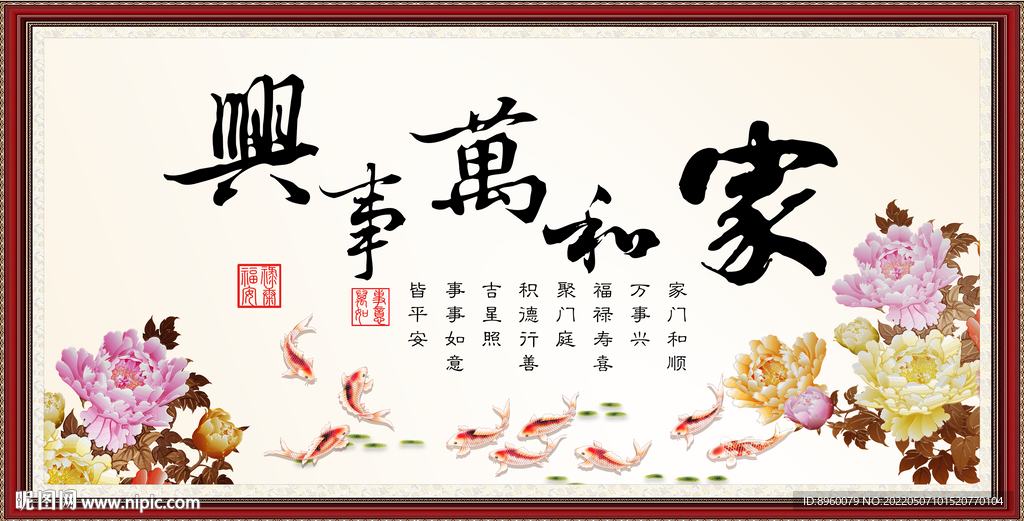 家和萬事興
家门和顺
万事兴
福禄寿喜
聚门庭
积德行善
吉星照
事事如意
皆平安
事意
萬如
昵图网 www.nipic.com
ID:8960079 NO:20220507101520770104